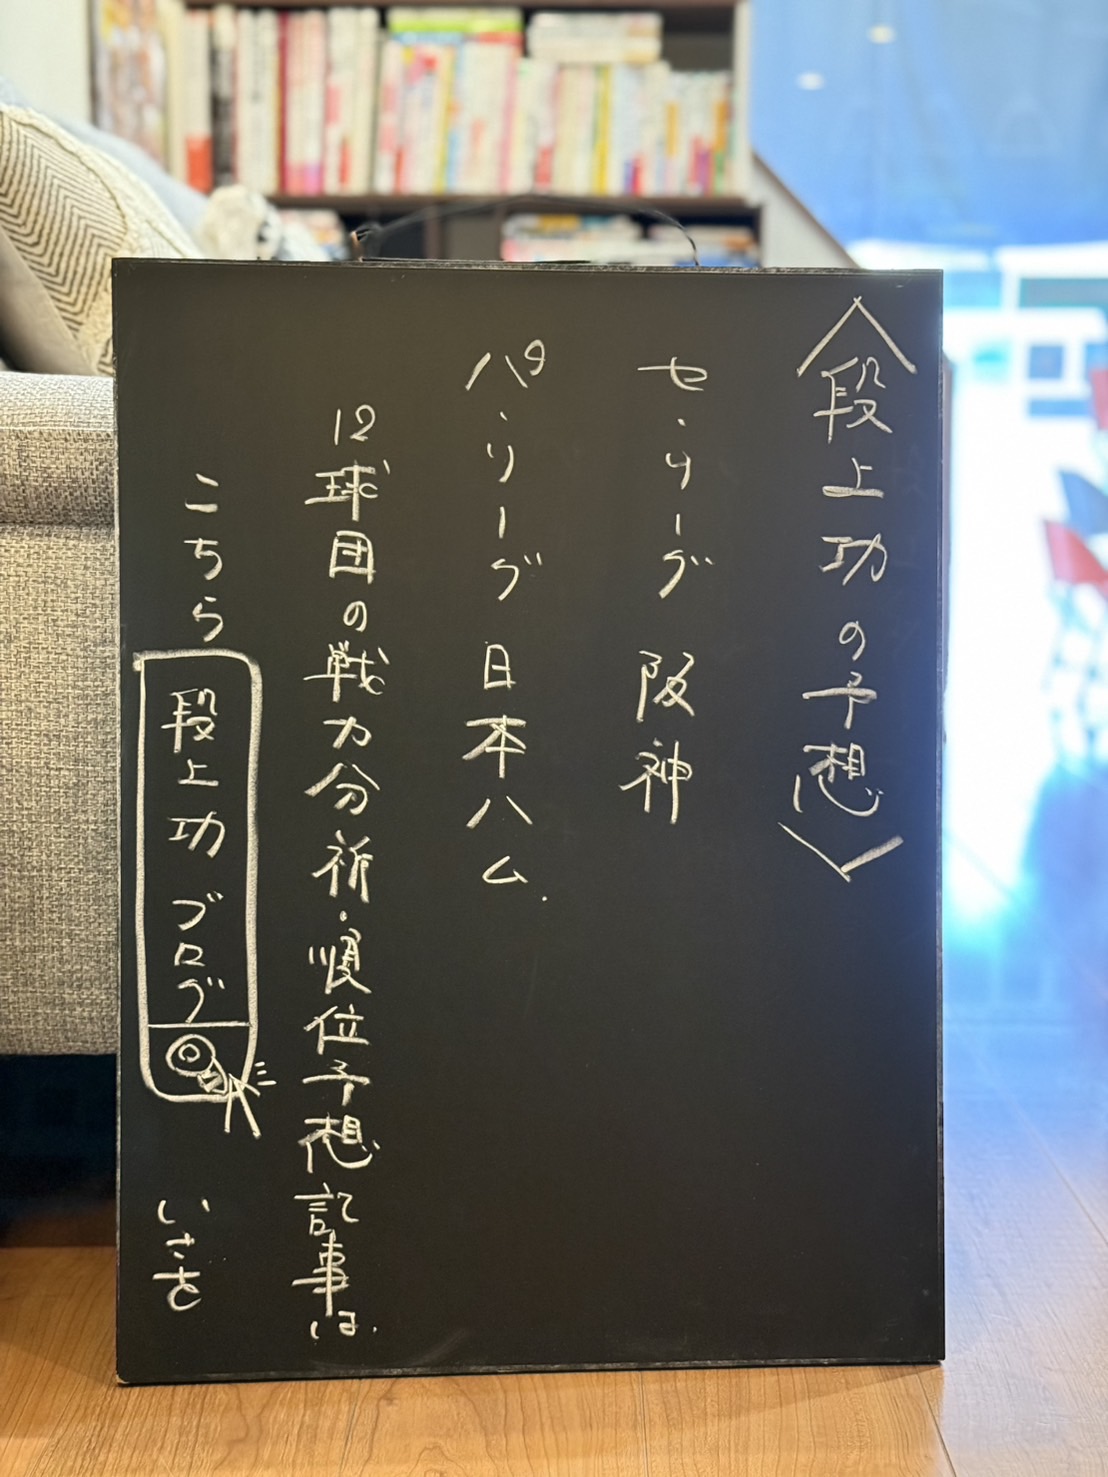 〈段上功の予想〉
セ・リーグ 阪神
パ・リーグ 日本ハム.
12球団の戦力分析・順位予想記事は
こちら 段上功 ブログ いさを